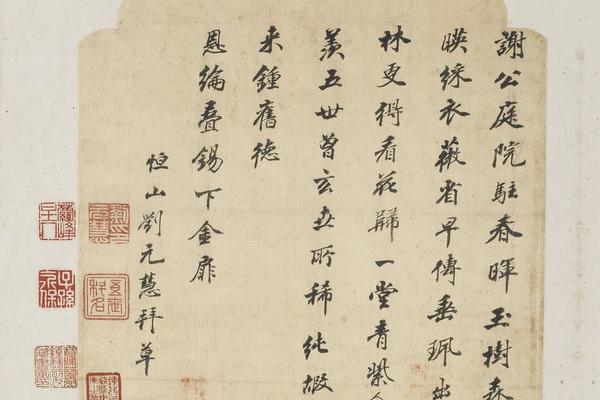 謝公庭院駐春暉玉樹森
暎綵衣薇省早傳垂珮出
林更得看花歸一堂青紫
羨五世曾玄世所稀純嘏
来鍾舊德
恩綸疊錫下金扉
恒山劉元慧拜草
子孫永保